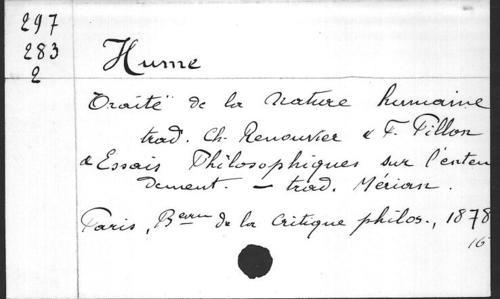 297
283
2
Hume
Traité de la Nature humaine
trad. Ch. Renouvier & F. Pillon
& Essais Philosophiques sur l'enten
dement. — trad. Mérian.
Paris, Beau de la Critique philos., 1878
16